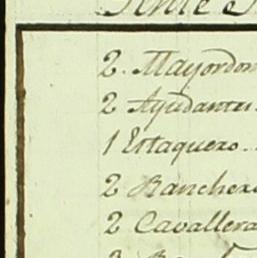 2. Mayordom
2 Ayudantes.
1 Estaquero.
2 Ranchero
2 Cavallera